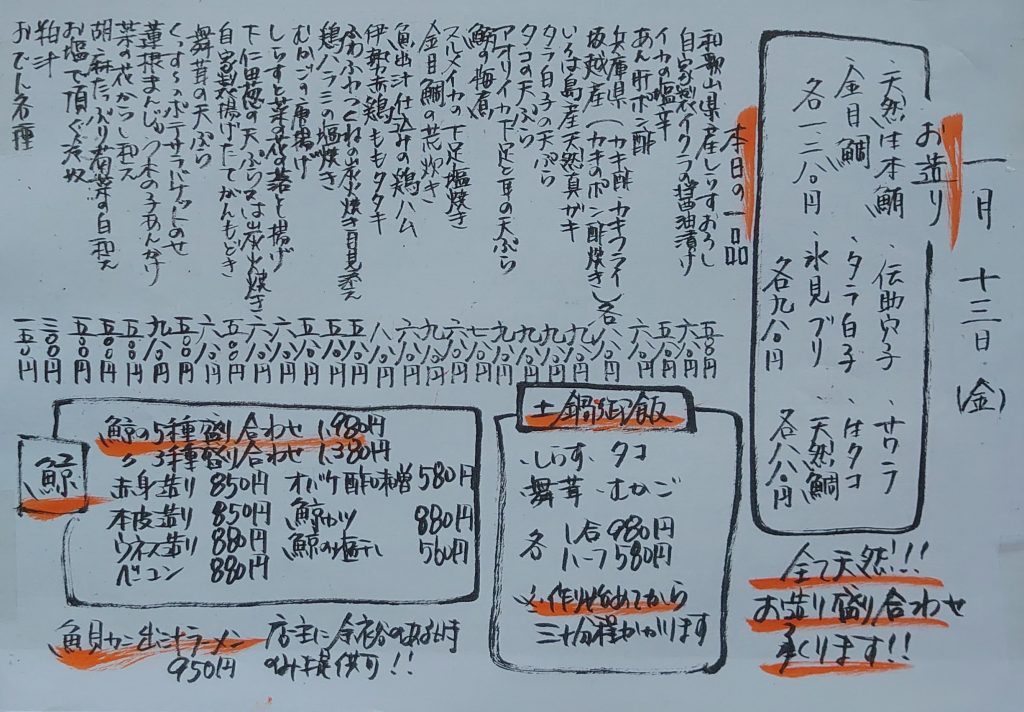 一月 十三日 (金)
お造り
・天然生本鮪 ・伝助穴子 ・サワラ
・金目鯛 ・タラ白子 ・生タコ
・氷見ブリ ・天然鯛
各一二八〇円 各九八〇円 各八八〇円
全て天然!!!
お造り盛り合わせ
承ります!!
本日の一品
和歌山県産しらすおろし 五八〇円
自家製イクラの醤油漬け 六八〇円
イカの塩辛 五八〇円
あん肝ポン酢
兵庫県 (カキ酢・カキフライ
坂越産 (カキのポン酢焼き) 各
いろは島産天然真ガキ
タラ白子の天ぷら
タコの天ぷら
アオリイカ下足と耳の天ぷら
鰯の梅煮
スルメイカの下足塩焼き
金目鯛の荒炊き
魚出汁仕込みの鶏ハム
伊勢赤鶏ももタタキ
ふわふわつくねの炭火焼き 月見添え
鶏ハラミの塩焼き
むかごの唐揚げ
しらすと菜の花の落とし揚げ
下仁田葱の天ぷら又は炭火焼き
自家製揚げたてがんもどき
舞茸の天ぷら
くっすうのポテサラバゲットのせ
蓮根まんじゅう 木の子あんかけ
菜の花からし和え
胡麻たっぷり春菊の白和え
お塩で頂く冷奴
粕汁 三八〇円
おでん各種 一五〇円
土鍋御飯
・しらす ・タコ
・舞茸 ・むかご
各 1合 980円
ハーフ 580円
※作り始めてから
三十分程かかります
鯨
鯨の5種盛り合わせ 1,980円
〃 3種盛り合わせ 1,380円
赤身造り 850円 オバケ酢味噌 580円
本皮造り 850円 鯨カツ 880円
ウネス造り 880円 鯨の塩干し 560円
ベーコン 880円
魚貝カニ出汁ラーメン 950円
店主に余裕のある時
のみ提供可!!